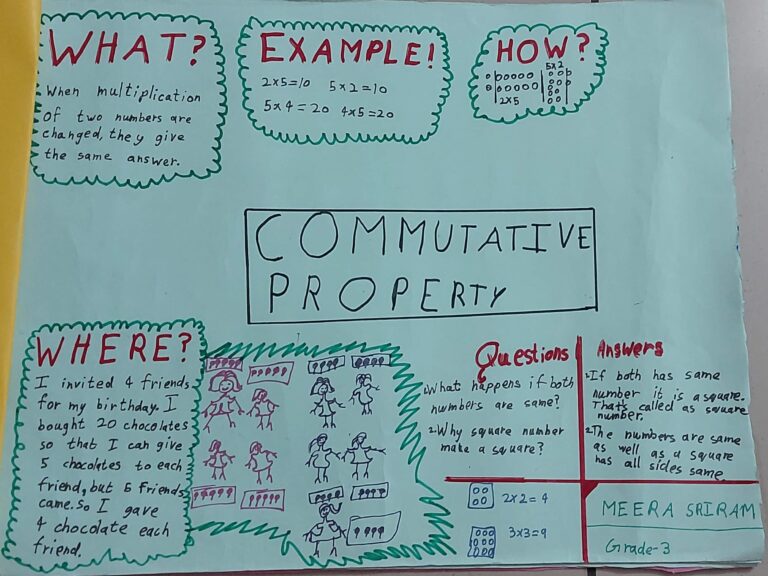 WHAT?
When multiplication
of two numbers are
changed, they give
the same answer.
EXAMPLE!
2x5=10 5x2=10
5x4=20 4x5=20
HOW?
5x2
2x5
COMMUTATIVE
PROPERTY
WHERE?
I invited 4 friends
for my birthday. I
bought 20 chocolates
so that I can give
5 chocolates to each
friend, but 5 friends
came. So I gave
4 chocolate each
friend.
Questions
1.What happens if both
numbers are same?
2.Why square number
make a square?
Answers
1.If both has same
number it is a square.
Thats called as square
number.
2.The numbers are same
as well as a square
has all sides same.
2x2=4
3x3=9
MEERA SRIRAM
Grade-3